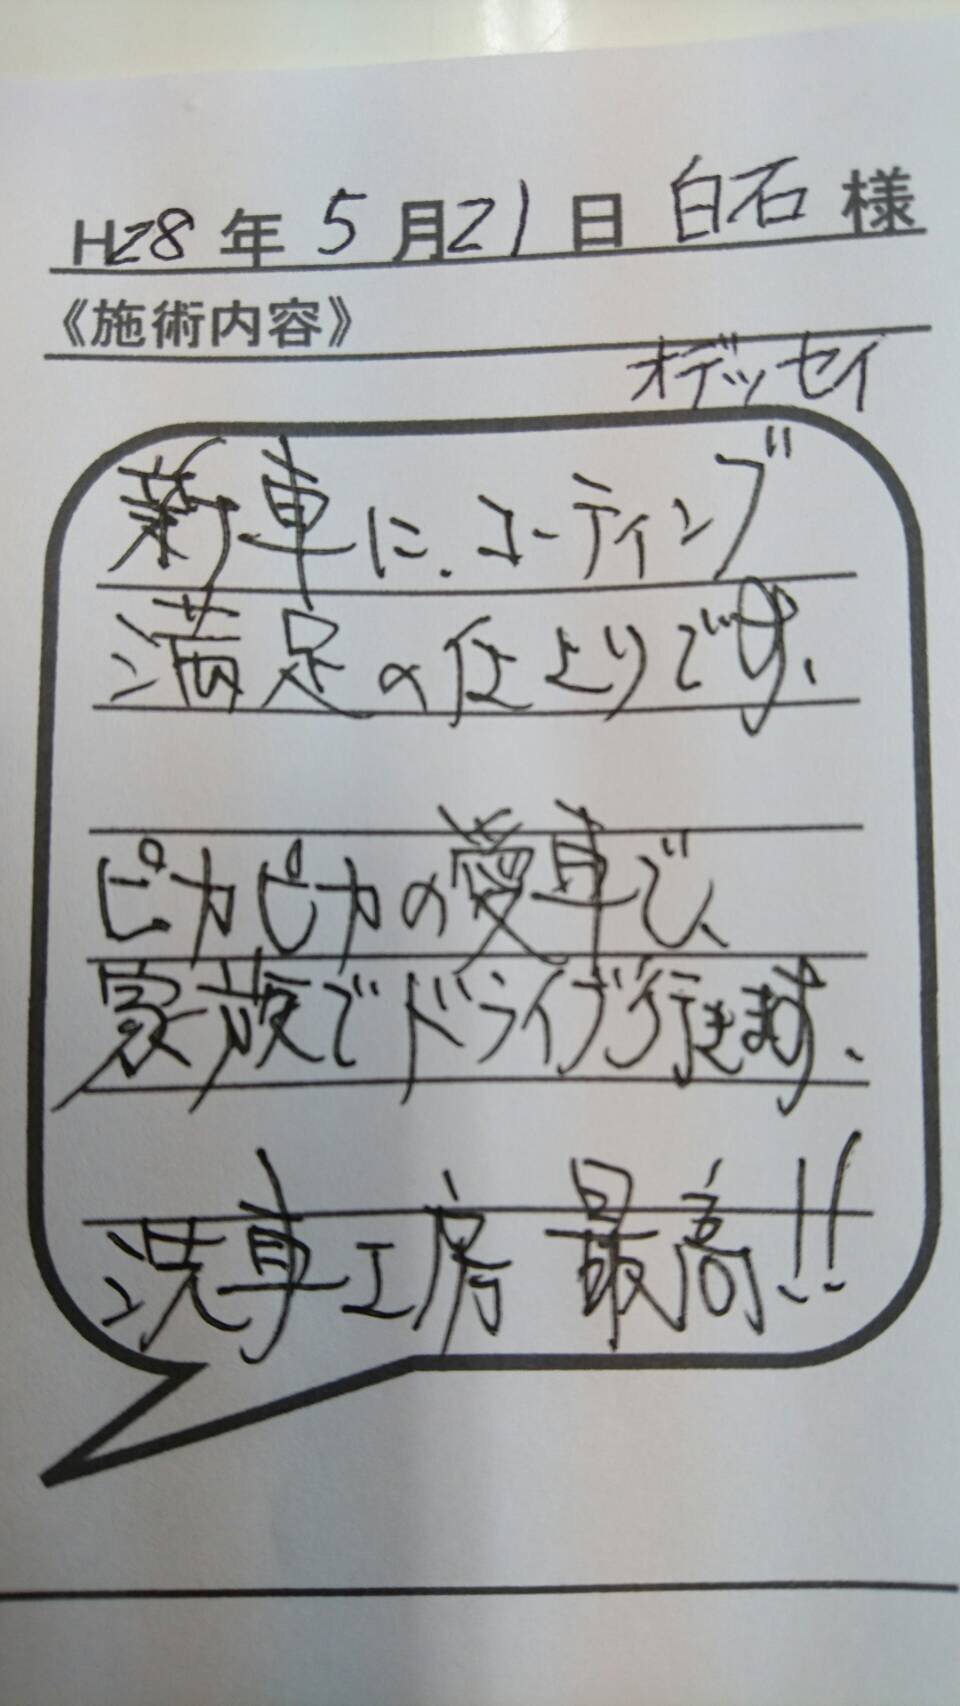 H28年 5月21日 白石 様
《施術内容》
オデッセイ
新車に、コーティング
満足の仕上りです、
ピカピカの愛車で、
家族でドライブ行きます、
洗車工房 最高!!